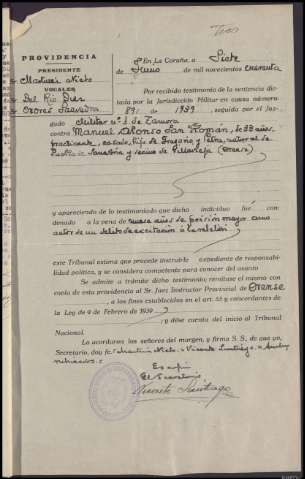 PROVIDENCIA
PRESIDENTE
VOCALES
Del Río
En La Coruña, a Siete
de Junio de mil novecientos cuarenta
Por recibido testimonio de la sentencia dic-
tada por la Jurisdicción Militar en causa número
891 de 1939, seguida por el Juz-
gado Militar nº 1 de Zamora
contra Manuel Alonso San Román, de 38 años,
practicante, casado, hijo de y Petra, natural de
Puebla de Sanabria y vecino de (Orense)
y apareciendo de tal testimonio que dicho individuo fué con-
denado a la pena de nueve años de prisión mayor como
autor de un delito de excitación a la rebelión
este Tribunal estima que procede instruirle expediente de responsabi-
lidad política, y se considera competente para conocer del asunto
Se admite a trámite dicho testimonio; remítase el mismo con
copia de esta providencia al Sr. Juez Instructor Provincial de Orense
a los fines establecidos en el art. 53 y concordantes de
la Ley de 9 de Febrero de 1939
y dése cuenta del inicio al Tribunal
Nacional.
Lo acordaron los señores del margen, y firma S. S. de que yo,
Secretario, doy fe: Vicente Santiago
rubricados
Es copia
El Secretario
Vicente Santiago